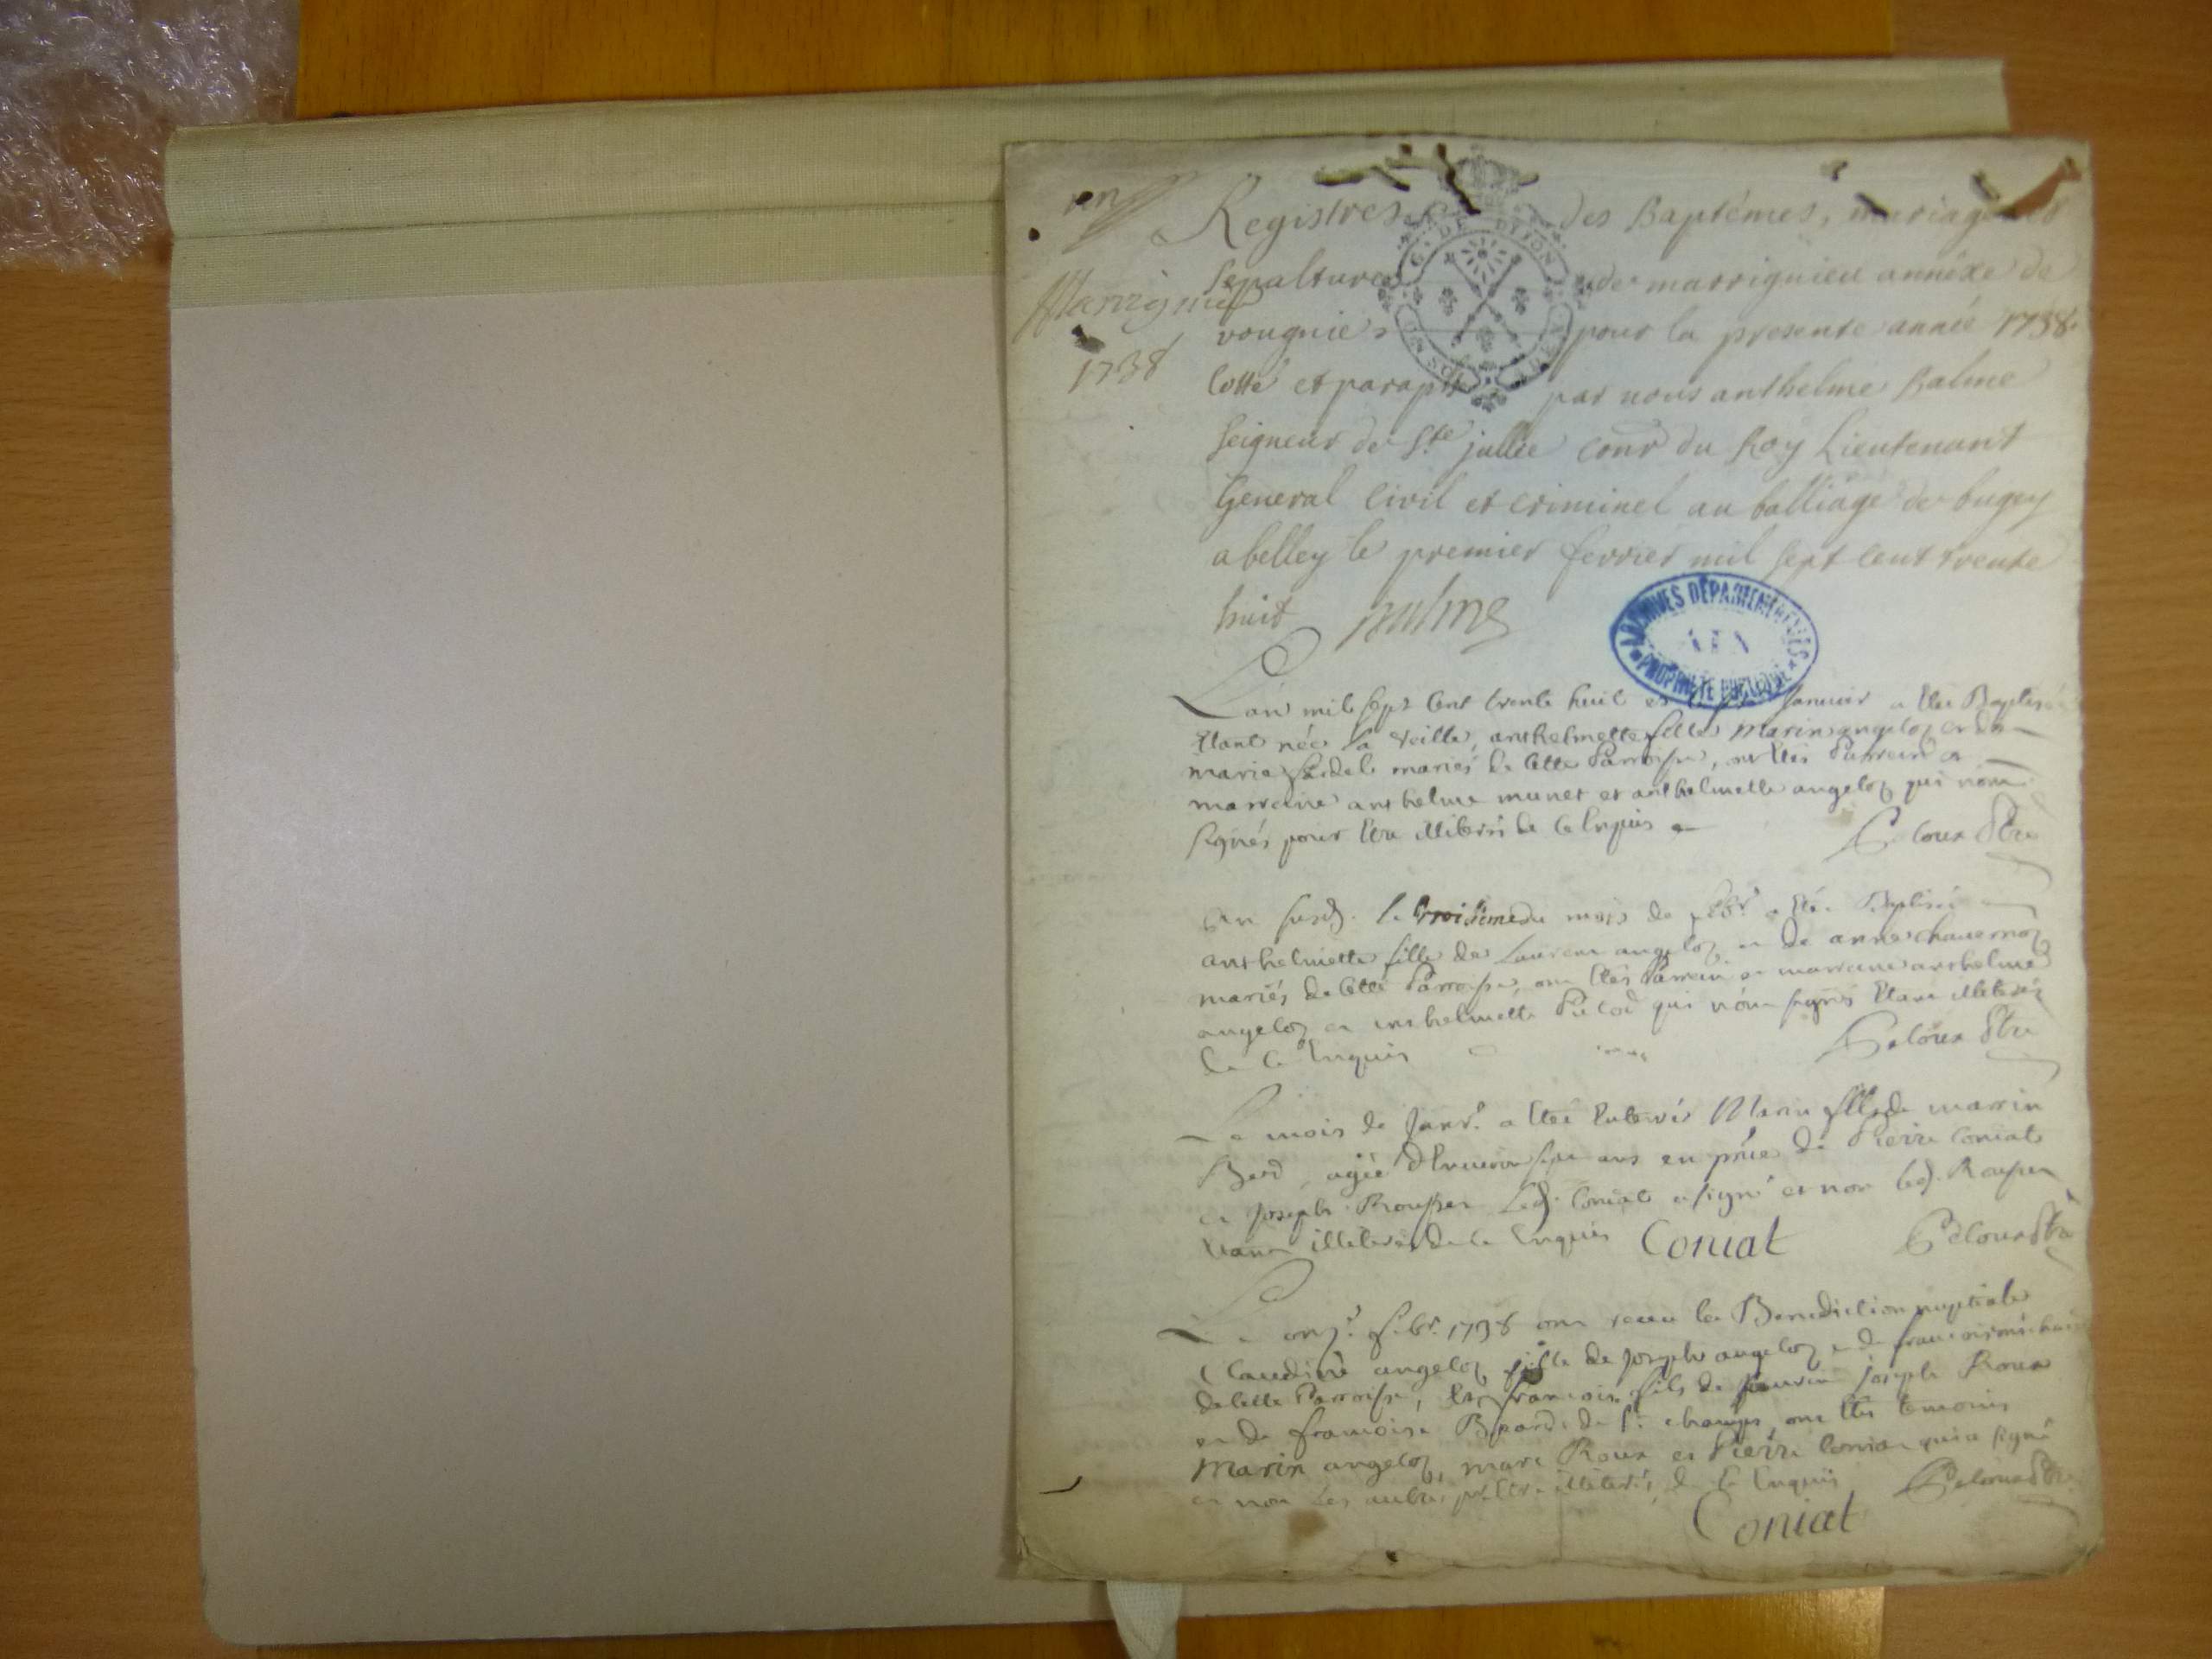 Marrignieu
1738
Registres des Baptêmes, mariages et
sepultures de marrignieu annéxe de
vougnies pour la presente année 1738
Cotté et paraphé par nous anthelme Balme
seigneur de Ste jullie Conr du Roy Lieutenant
General Civil et criminel au balliage de bugey
a belley le premier fevrier mil sept cent trente
huit Balme
ARCHIVES DÉPARTEMENTALES
AIN
PROPRIÉTÉ PUBLIQUE
L'an mil sept cent trente huit et le Janvier a été Baptisée
étant née la veille, anthelmette fille Marin angeloz et de
marie mariés de cette Parroisse, ont étés Parrein et
marraine anthelme munet et anthelmette angeloz qui n'ont
signés pour être illiterés de ce enquis
An susd. le troisieme du mois de febr a été Baptisée
anthelmette fille de Laurent angeloz et de anne chavernoz
mariés de cette Parroisse, ont étés Parrein et marraine anthelme
angeloz et anthelmette qui n'ont signés étant illiterés
de ce enquis
Le mois de Janr. a été enterrée Marie fille de marin
Berd, agée d'environ sept ans en pnce de Pierre Coniat
et Joseph Rousset Led. Coniat a signé et non led. Rousset
étant illiteré de ce enquis Coniat
Le onz. febr. 1738 ont receu la Benediction nuptiale
Claudine angeloz fille de Joseph angeloz et de francoise
de cette Parroisse, et francois fils de joseph Roux
et de francoise de St. champs, ont étés temoins
Marin angeloz, marc Roux et Pierre Coniat qui a signé
et non les autres pr. être illiterés, de ce enquis
Coniat